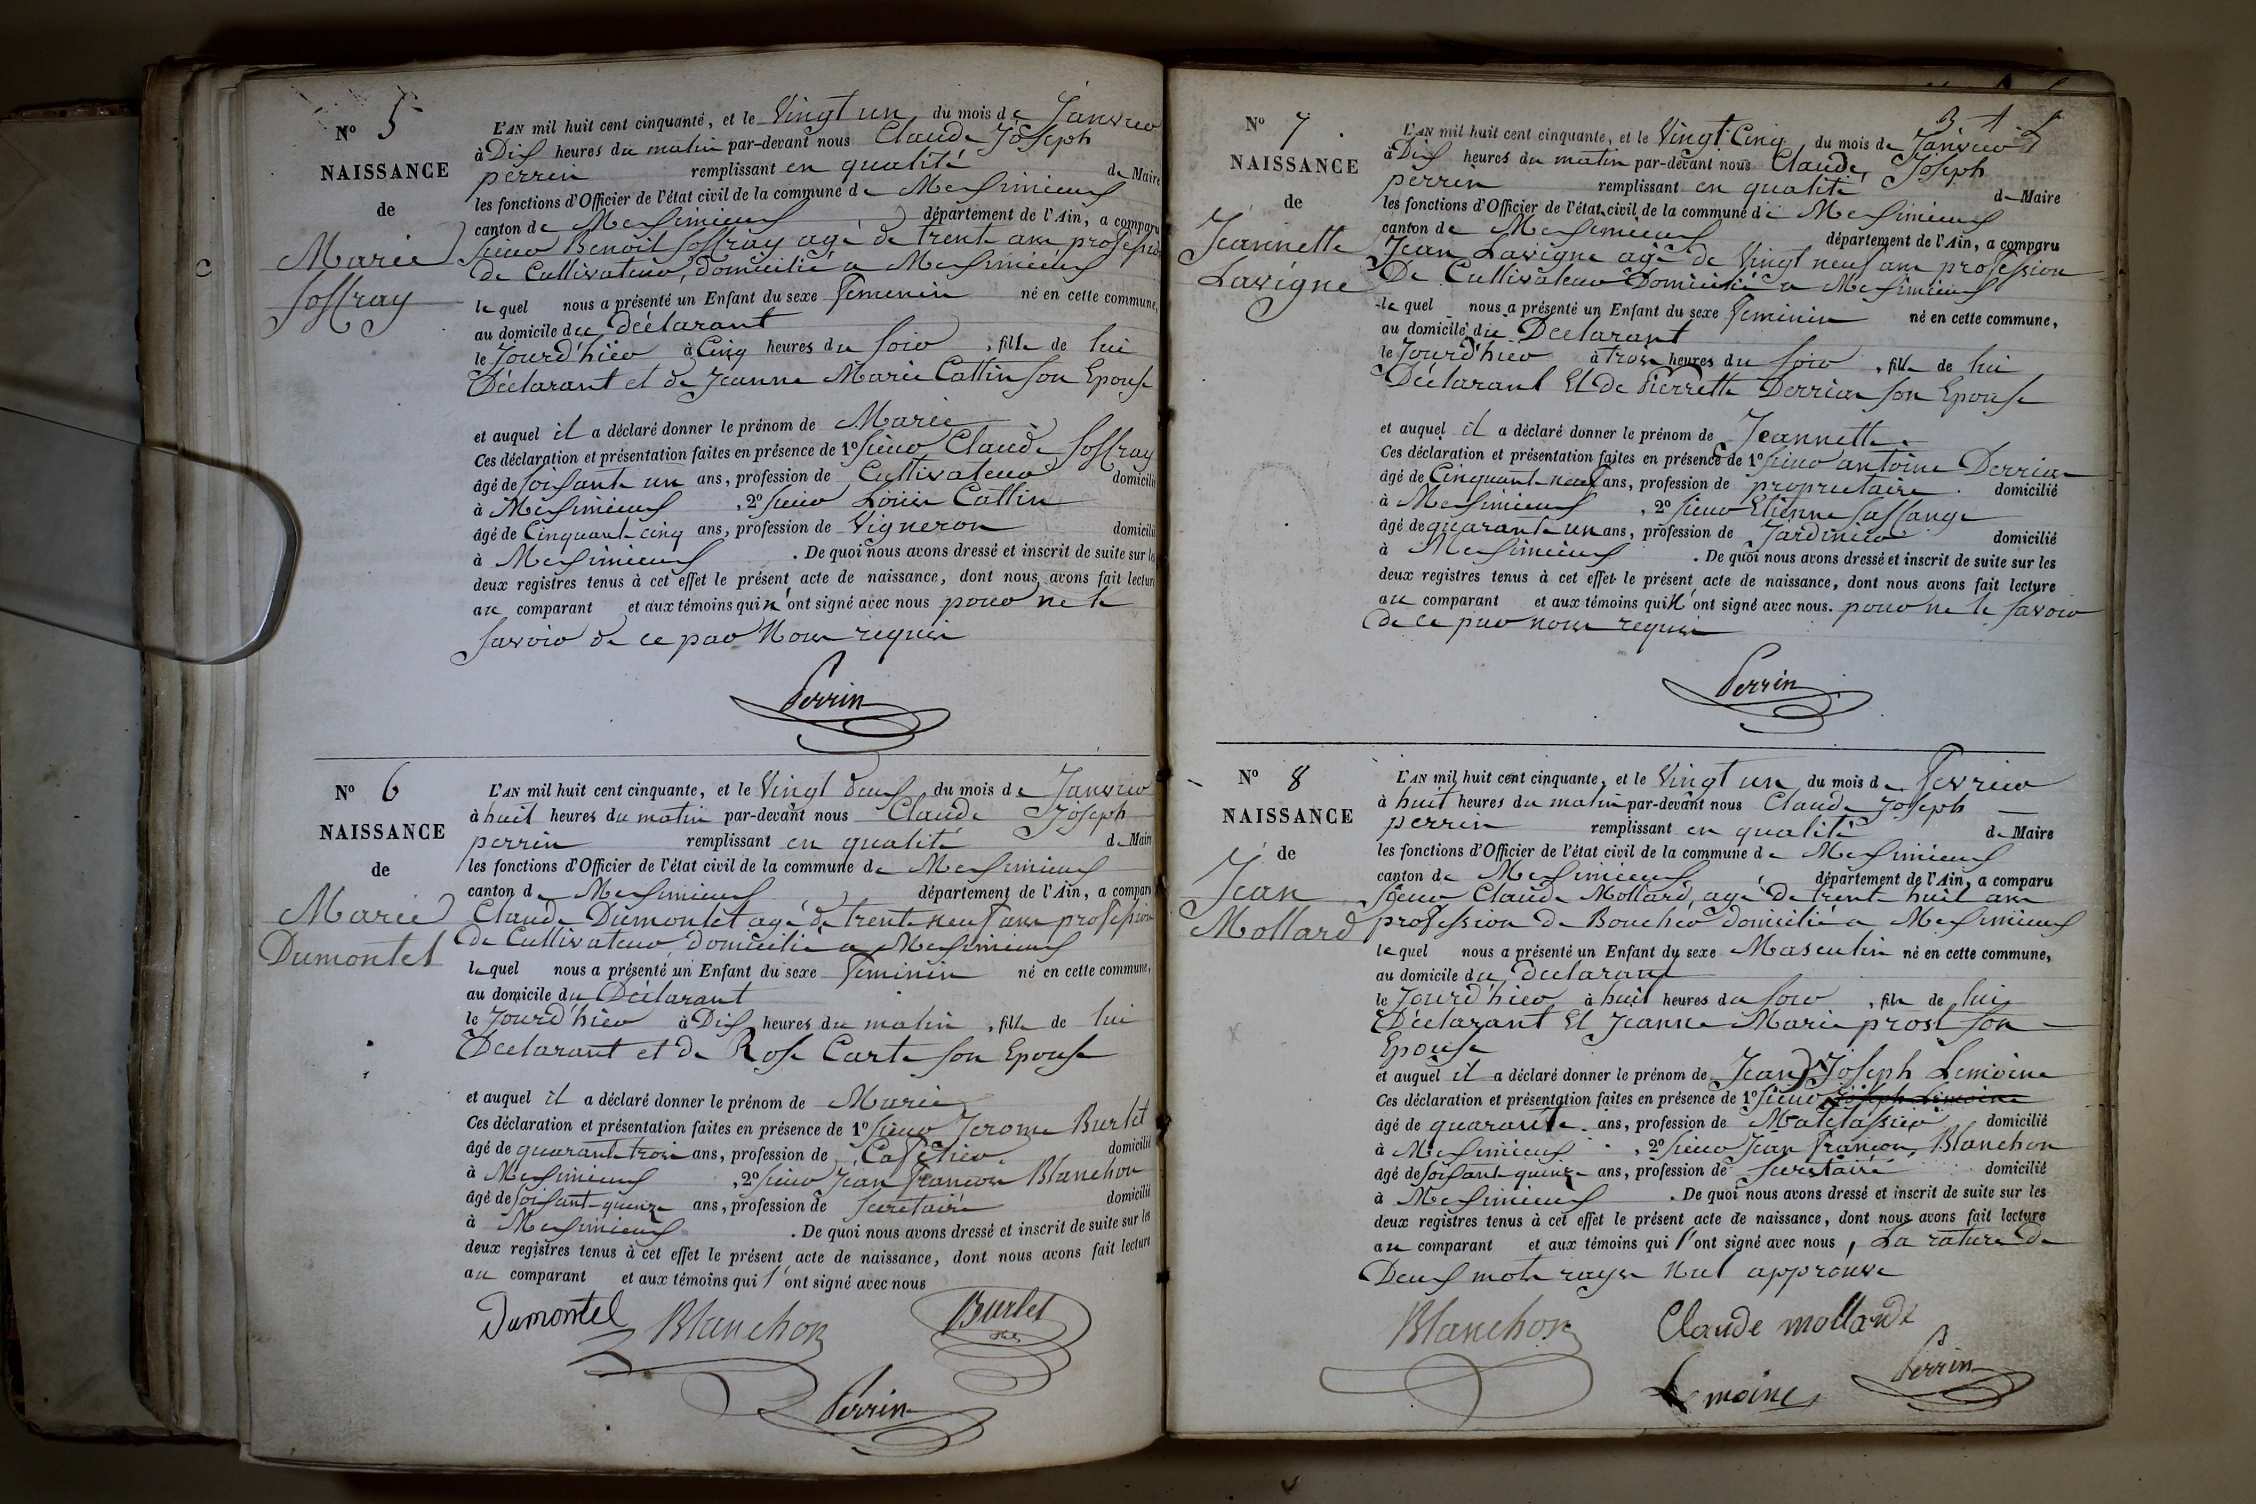 N° 5
NAISSANCE
de
Marie
Joffray
L'AN mil huit cent cinquante, et le Vingt un du mois de Janvier
à Dix heures du matin par-devant nous Claude Joseph
perrin remplissant en qualité de Maire
les fonctions d'Officier de l'état civil de la commune de Meximieux
canton de Meximieux département de l'Ain, a comparu
sieur Benoit Joffray agé de trente ans profession
de Cultivateur, domicilié a Meximieux
lequel nous a présenté un Enfant du sexe femenin né en cette commune,
au domicile du Déclarant
le Jourd'hier à Cinq heures du soir, fille de lui
Déclarant et de Jeanne Marie Cattin son Epouse
et auquel il a déclaré donner le prénom de Marie
Ces déclaration et présentation faites en présence de 1° sieur Claude Joffray
âgé de soixante un ans, profession de Cultivateur domicilié
à Meximieux, 2° sieur Louis Cattin
âgé de Cinquante cinq ans, profession de Vigneron domicilié
à Meximieux. De quoi nous avons dressé et inscrit de suite sur les
deux registres tenus à cet effet le présent acte de naissance, dont nous avons fait lecture
au comparant et aux témoins qui n'ont signé avec nous pour ne le
savoir de ce par Nous requis
Perrin
N° 6
NAISSANCE
de
Marie
Dumontet
L'AN mil huit cent cinquante, et le Vingt deux du mois de Janvier
à huit heures du matin par-devant nous Claude Joseph
perrin remplissant en qualité de Maire
les fonctions d'Officier de l'état civil de la commune de Meximieux
canton de Meximieux département de l'Ain, a comparu
Claude Dumontet agé de trente neuf ans profession
de Cultivateur domicilié a Meximieux
lequel nous a présenté un Enfant du sexe feminin né en cette commune,
au domicile du Déclarant
le Jourd'hier à Dix heures du matin, fille de lui
Déclarant et de Rose Carte son Epouse
et auquel il a déclaré donner le prénom de Marie
Ces déclaration et présentation faites en présence de 1° sieur Jerome Burlet
âgé de quarante trois ans, profession de Cafetier domicilié
à Meximieux, 2° sieur Jean françois Blanchon
âgé de soixante quinze ans, profession de secretaire domicilié
à Meximieux. De quoi nous avons dressé et inscrit de suite sur les
deux registres tenus à cet effet le présent acte de naissance, dont nous avons fait lecture
au comparant et aux témoins qui l'ont signé avec nous
Dumontel Blanchon Burlet
Perrin
N° 7
NAISSANCE
de
Jeannette
Lavigne
L'AN mil huit cent cinquante, et le Vingt Cinq du mois de Janvier
à Dix heures du matin par-devant nous Claude, Joseph
perrin remplissant en qualité de Maire
les fonctions d'Officier de l'état civil de la commune de Meximieux
canton de Meximieux département de l'Ain, a comparu
Jean Lavigne agé de Vingt neuf ans profession
De Cultivateur Domicilié a Meximieux
lequel nous a présenté un Enfant du sexe feminin né en cette commune,
au domicile du Declarant
le Jourd'hier à trois heures du soir, fille de lui
Déclarant Et de Pierrette Derrias son Epouse
et auquel il a déclaré donner le prénom de Jeannette
Ces déclaration et présentation faites en présence de 1° sieur antoine Derrias
âgé de Cinquante neuf ans, profession de proprietaire domicilié
à Meximieux, 2° sieur Etienne
âgé de quarante un ans, profession de Jardinier domicilié
à Meximieux. De quoi nous avons dressé et inscrit de suite sur les
deux registres tenus à cet effet le présent acte de naissance, dont nous avons fait lecture
au comparant et aux témoins qui N'ont signé avec nous. pour ne le savoir
de ce par nous requis
Perrin
N° 8
NAISSANCE
de
Jean
Mollard
L'AN mil huit cent cinquante, et le Vingt un du mois de fevrier
à huit heures du matin par-devant nous Claude Joseph
perrin remplissant en qualité de Maire
les fonctions d'Officier de l'état civil de la commune de Meximieux
canton de Meximieux département de l'Ain, a comparu
sieur Claude Mollard, agé de trente huit ans
profession de Boucher domicilié a Meximieux
lequel nous a présenté un Enfant du sexe Masculin né en cette commune,
au domicile du declarant
le Jourd'hier à huit heures du soir, fils de lui
Déclarant Et Jeanne Marie prost son
Epouse
et auquel il a déclaré donner le prénom de Jean) Joseph Lemoine
Ces déclaration et présentation faites en présence de 1° sieur Joseph Lemoine
âgé de quarante ans, profession de Matelassier domicilié
à Meximieux, 2° sieur Jean françois, Blanchon
âgé de soixante quinze ans, profession de secretaire domicilié
à Meximieux. De quoi nous avons dressé et inscrit de suite sur les
deux registres tenus à cet effet le présent acte de naissance, dont nous avons fait lecture
au comparant et aux témoins qui l'ont signé avec nous, La rature de
Deux mots rayes Nul approuve
Blanchon Claude mollard
Lemoine Perrin